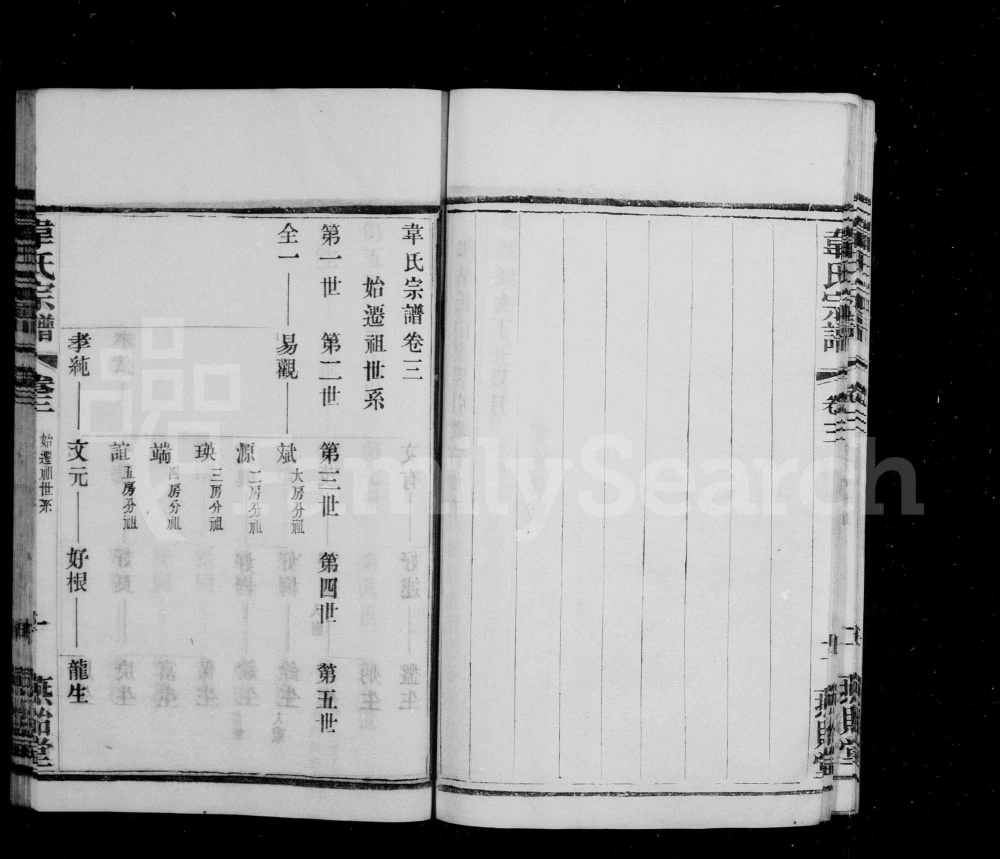 韋氏宗譜
韋氏宗譜卷三
始遷祖世系
第一世　第二世　第三世　第四世　第五世
全一　易觀　斌 大房分祖
源 二房分祖
瑛 三房分祖
端 四房分祖
誼 五房分祖
孝純　文元　好根　龍生
韋氏宗譜　卷三　始遷祖世系　一　燕貽堂
FamilySearch